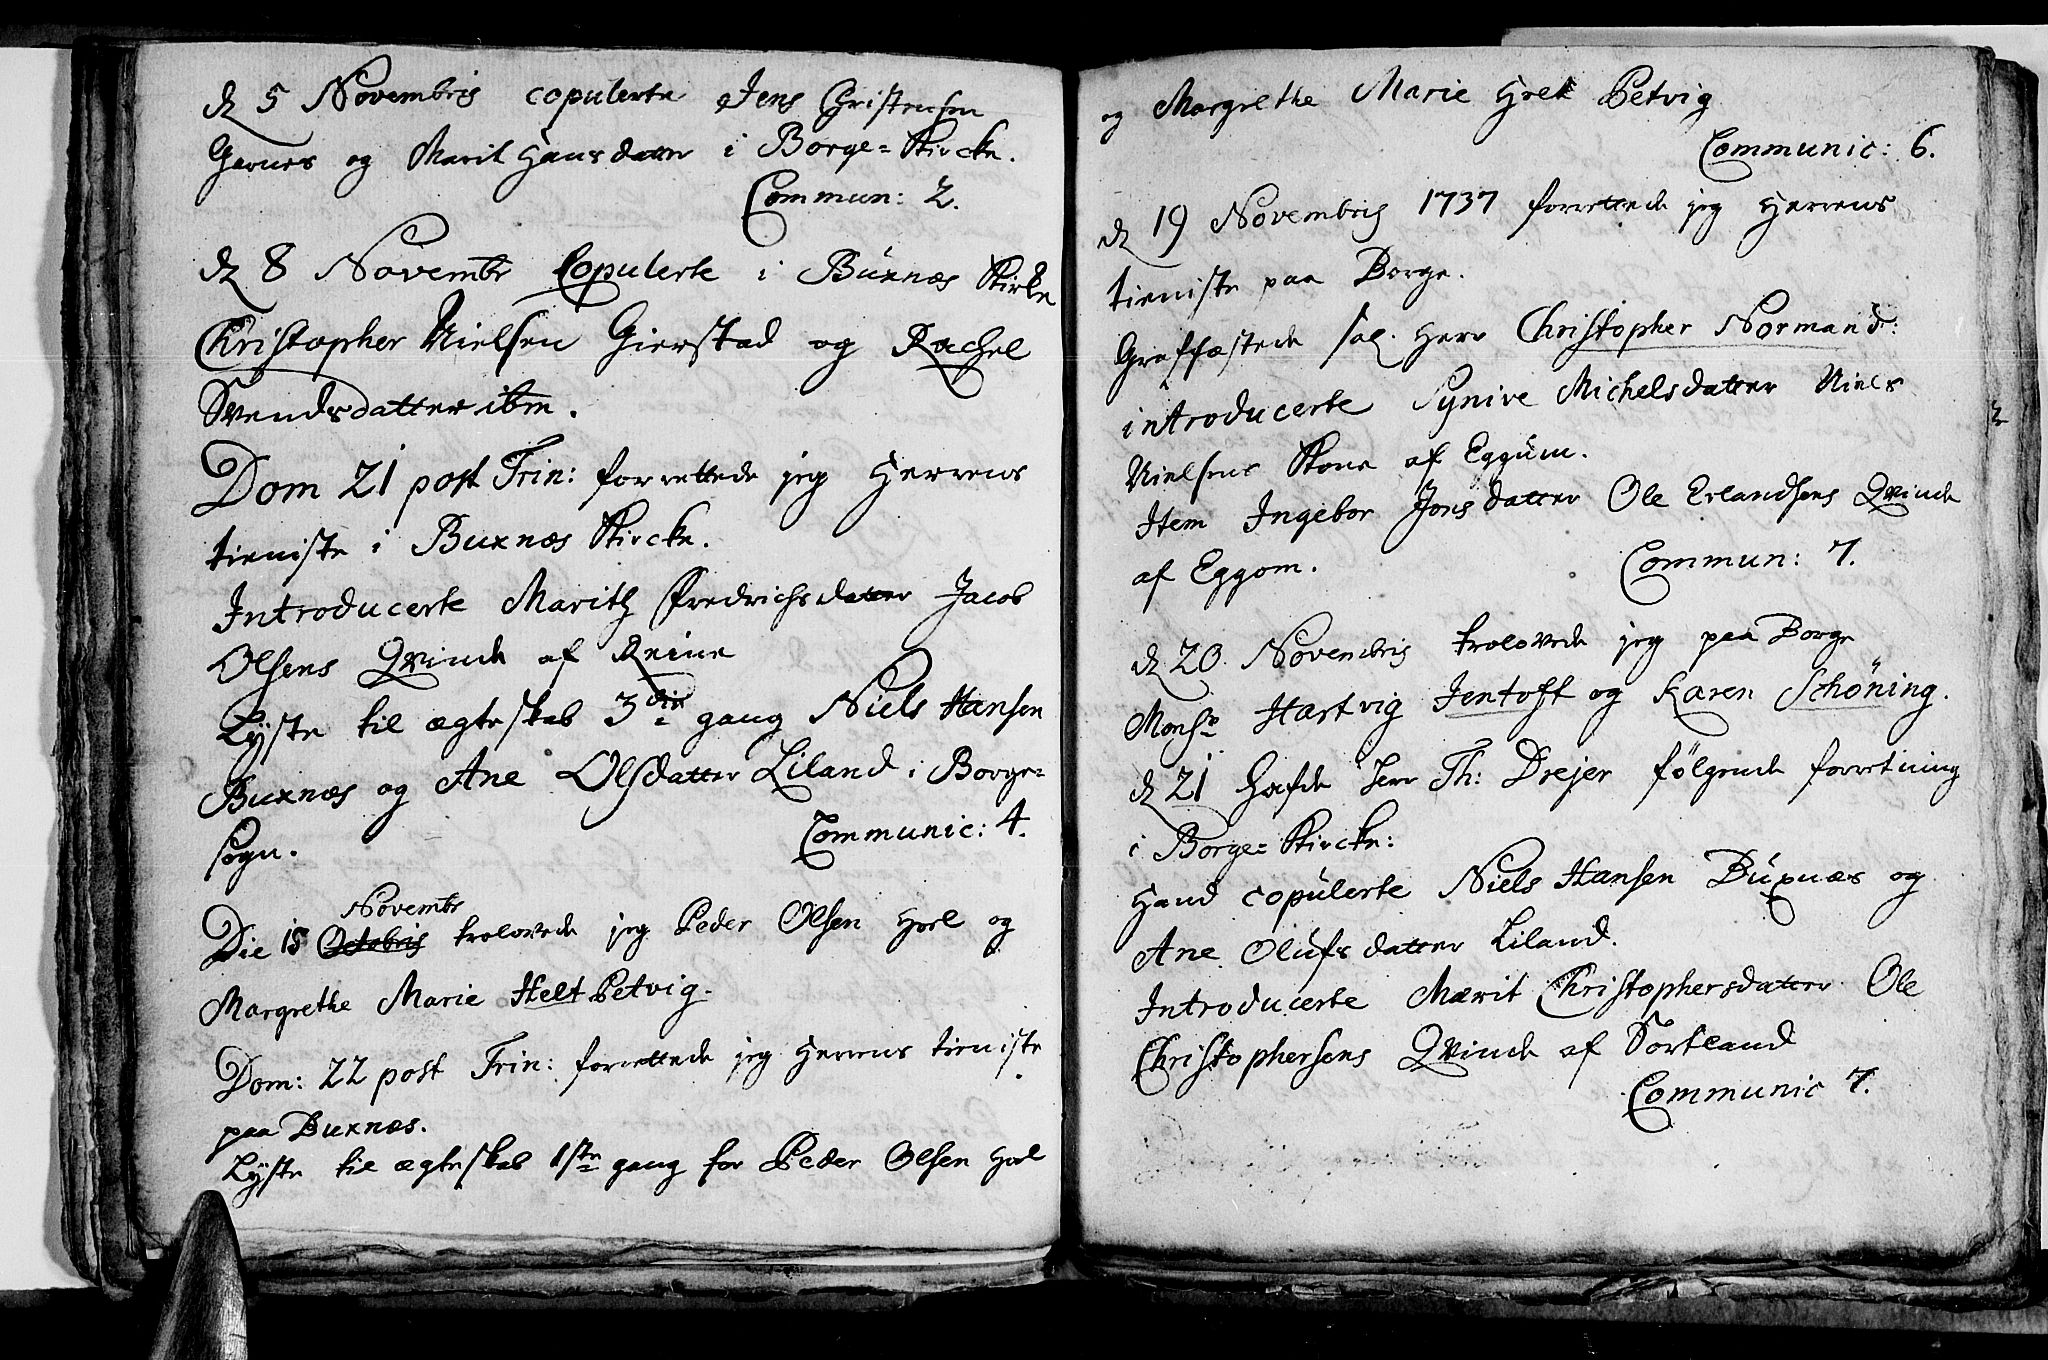 d 5 Novembris copulerte Jens Christensen
Garnes og Marit Hansdatter i Borge=Kircke.
Commun: 2.
d 8 Novembr Copulerte i Buxnæs Kirke
Christopher Nielsen Gierstad og Rachel
Svendsdatter ibm.
Dom 21 post Trin: forrettede jeg Herrens
tieniste i Buxnæs Kircke.
Introducerte Marith Fredrichsdatter Jacob
Olsens Qvinde af Reine
Lyste til ægteskab 3die gang Niels Hansen
Buxnæs og Ane Olsdatter Liland i Borge=
sogn. Communic: 4.
Novembr
Die 15 Octobris trolovede jeg Peder Olsen Hoel og
Margrethe Marie Helt Petvig.
Dom: 22 post Trin: forrettede jeg Herrens tieniste
paa Buxnæs.
Lyste til ægteskab 1ste gang for Peder Olsen Hoel
og Margrethe Marie Helt Petvig
Communic: 6.
d 19 Novembris 1737 forrettede jeg Herrens
tieniste paa Borge.
Grafæstede sal. Herr Christopher Normand:
introducerte Synive Michelsdatter Niels
Nielsens Kone af Eggum.
Item Ingebor Jonsdatter Ole Erlandsens Qvinde
af Eggom. Commun: 7.
d 20 Novembris trolovede jeg paa Borge
Monsr Hartvig Jentoft og Karen Schöning.
d 21 hafde Herr Th: Drejer følgende forretning
i Borge=Kircke:
Hand copulerte Niels Hansen Buxnæs og
Ane Olufsdatter Liland.
Introducerte Marit Christophersdatter Ole
Christophersens Qvinde af Sortland
Communic 7.